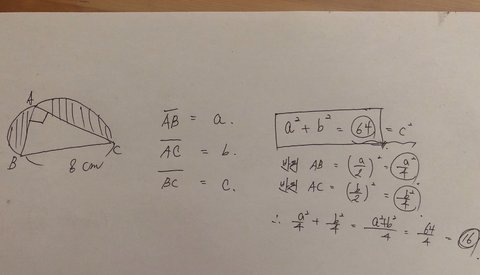 A
B
C
8 cm
AB = a.
AC = b.
BC = c.
a² + b² = 64 = c²
AB = (a/2)² = a²/4
AC = (b/2)² = b²/4
∴ a²/4 + b²/4 = a²+b²/4 = 64/4 = 16